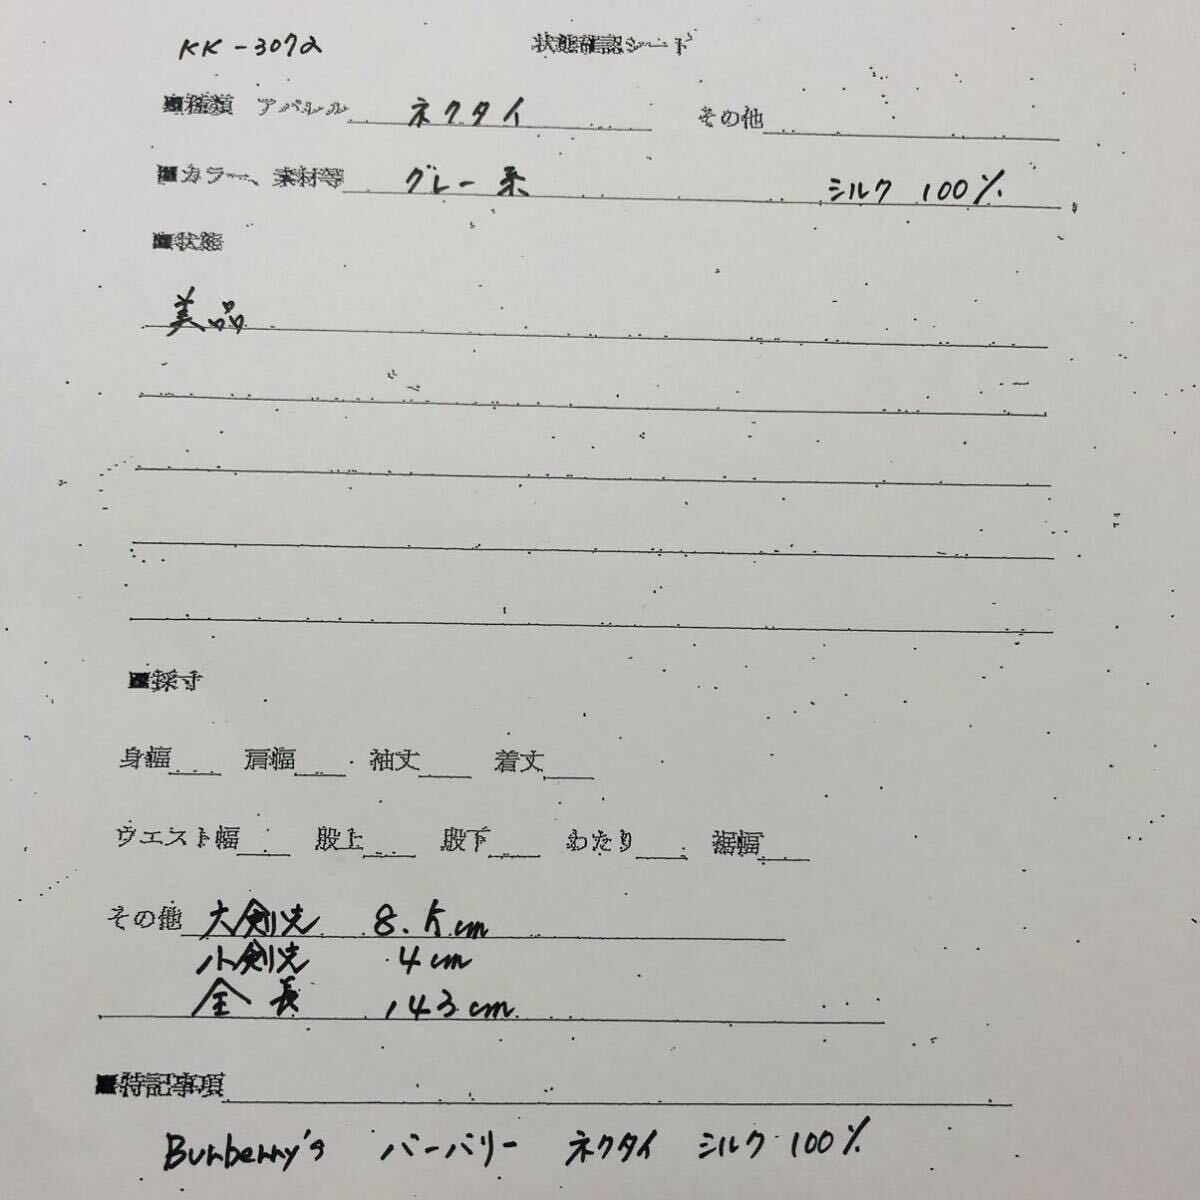 KK-3072 状態確認シート
■種類 アパレル ネクタイ その他
■カラー、素材等 グレー系 シルク 100%
■状態
美品
■採寸
身幅 肩幅 袖丈 着丈
ウエスト幅 股上 股下 わたり 裾幅
その他 大剣先 8.5cm
小剣先 4cm
全長 143cm
■特記事項
Burberry's バーバリー ネクタイ シルク 100%